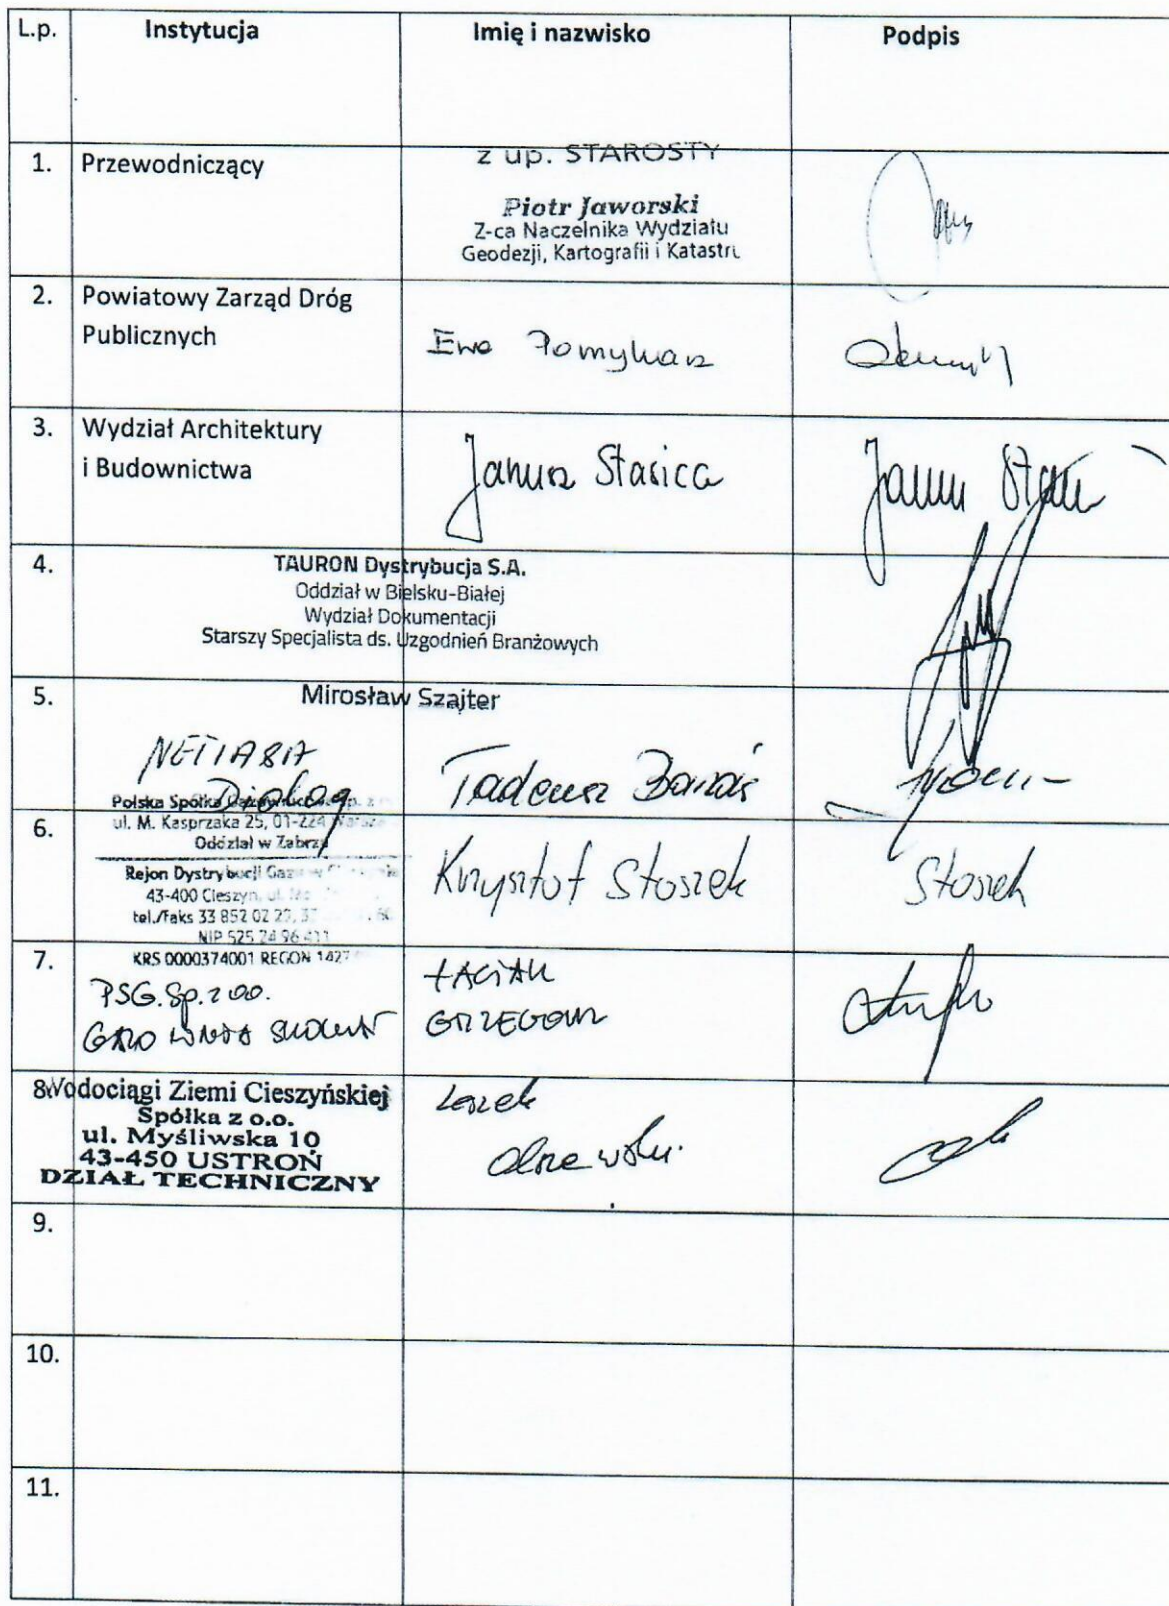 L.p. Instytucja Imię i nazwisko Podpis
1. Przewodniczący
z up. STAROSTY
Piotr Jaworski
Z-ca Naczelnika Wydziału
Geodezji, Kartografii i Katastru
2. Powiatowy Zarząd Dróg
Publicznych
Ewa
3. Wydział Architektury
i Budownictwa
Janusz Stasica
4.
TAURON Dystrybucja S.A.
Oddział w Bielsku-Białej
Wydział Dokumentacji
Starszy Specjalista ds. Uzgodnień Branżowych
5.
Mirosław Szajter
NETIA
Dialog
Tadeusz
Polska Spółka
ul. M. Kasprzaka 25, 01-224
Oddział w Zabrzu
6.
Krzysztof Stoszek Stoszek
Rejon Dystrybucji
43-400 Cieszyn, ul.
tel./faks 33 852 02
NIP 525 24 96 411
KRS 0000374001 REGON 1427
7.
PSG. Sp. z oo.
ŁACIAK
GRZEGORZ
8. Wodociągi Ziemi Cieszyńskiej
Spółka z o.o.
ul. Myśliwska 10
43-450 USTROŃ
DZIAŁ TECHNICZNY
Leszek
9.
10.
11.